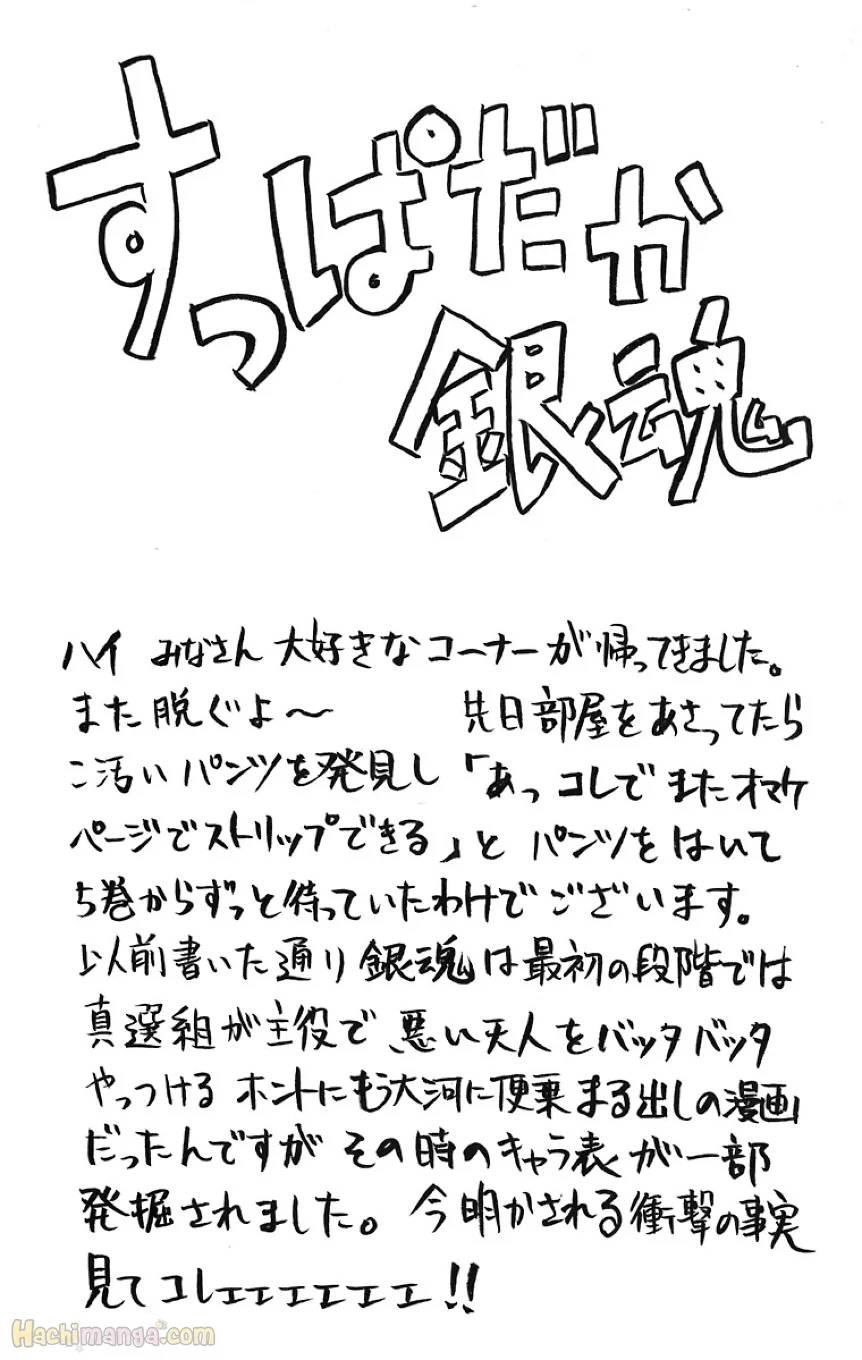 すっぱだか
銀魂
ハイ みなさん 大好きなコーナーが帰ってきました。
また脱ぐよ〜 先日部屋をあさってたら
こ汚いパンツを発見し「あっ コレでまたオマケ
ページでストリップできる」と パンツをはいて
5巻からずっと待っていたわけでございます。
以前書いた通り銀魂は最初の段階では
真選組が主役で、悪い天人をバッタバッタ
やっつける ホントにもう大河に便乗まる出しの漫画
だったんですが その時のキャラ表が一部
発掘されました。今明かされる衝撃の事実
見てコレェェェェェェ!!
Hachimanga.com